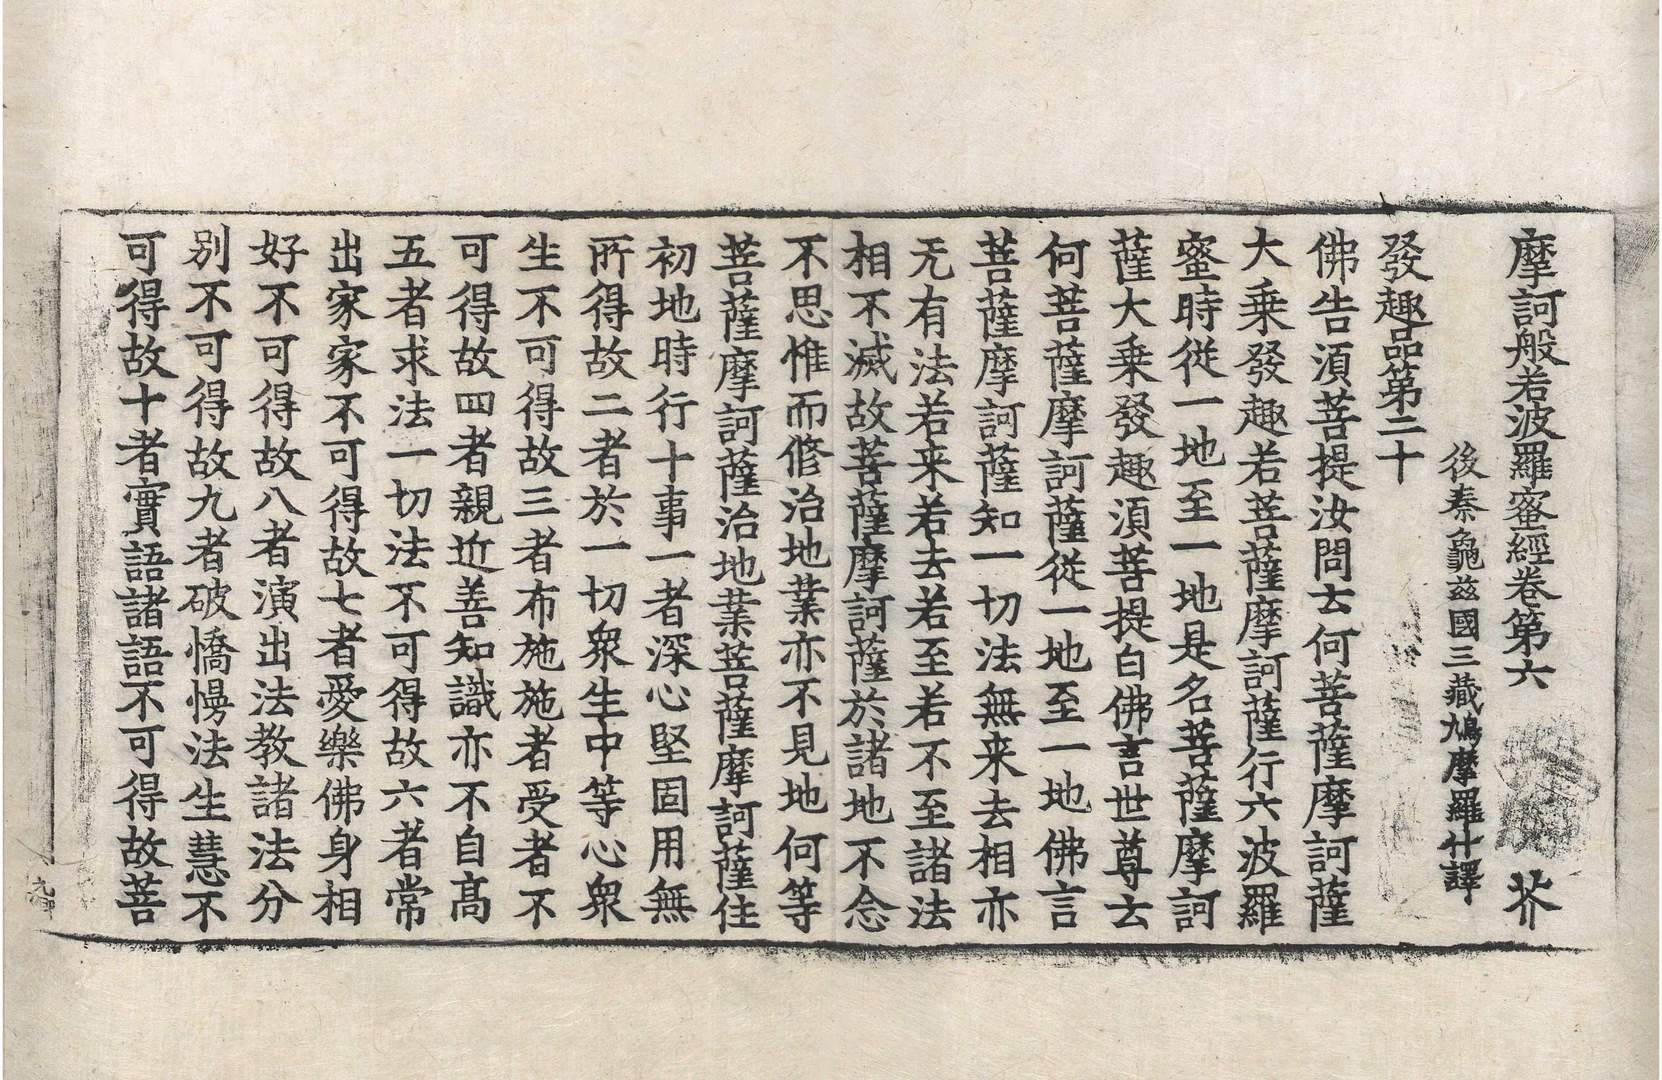 摩訶般若波羅蜜經卷第六　芥
後秦龜茲國三藏鳩摩羅什譯
發趣品第二十
佛告湏菩提汝問云何菩薩摩訶薩
大乗發趣若菩薩摩訶薩行六波羅
蜜時從一地至一地是名菩薩摩訶
薩大乗發趣湏菩提白佛言世尊云
何菩薩摩訶薩從一地至一地佛言
菩薩摩訶薩知一切法無来去相亦
无有法若来若去若至若不至諸法
相不滅故菩薩摩訶薩於諸地不念
不思惟而修治地業亦不見地何等
菩薩摩訶薩治地業菩薩摩訶薩住
初地時行十事一者深心堅固用無
所得故二者於一切衆生中等心衆
生不可得故三者布施施者受者不
可得故四者親近善知識亦不自高
五者求法一切法不可得故六者常
出家家不可得故七者愛樂佛身相
好不可得故八者演出法教諸法分
别不可得故九者破憍慢法生慧不
可得故十者實語諸語不可得故菩